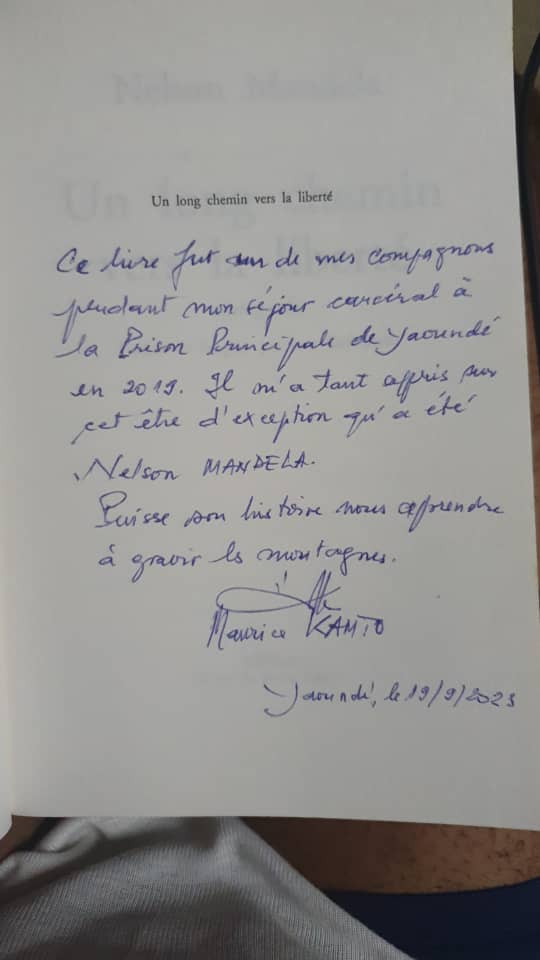 Un long chemin vers la liberté
Ce livre fut un de mes compagnons
pendant mon séjour carcéral à
la Prison Principale de Yaoundé
en 2019. Il m'a tant appris sur
cet être d'exception qu'a été
Nelson MANDELA.
Puisse son histoire nous apprendre
à gravir les montagnes.
Maurice KAMTO
Yaoundé, le 19/9/2023